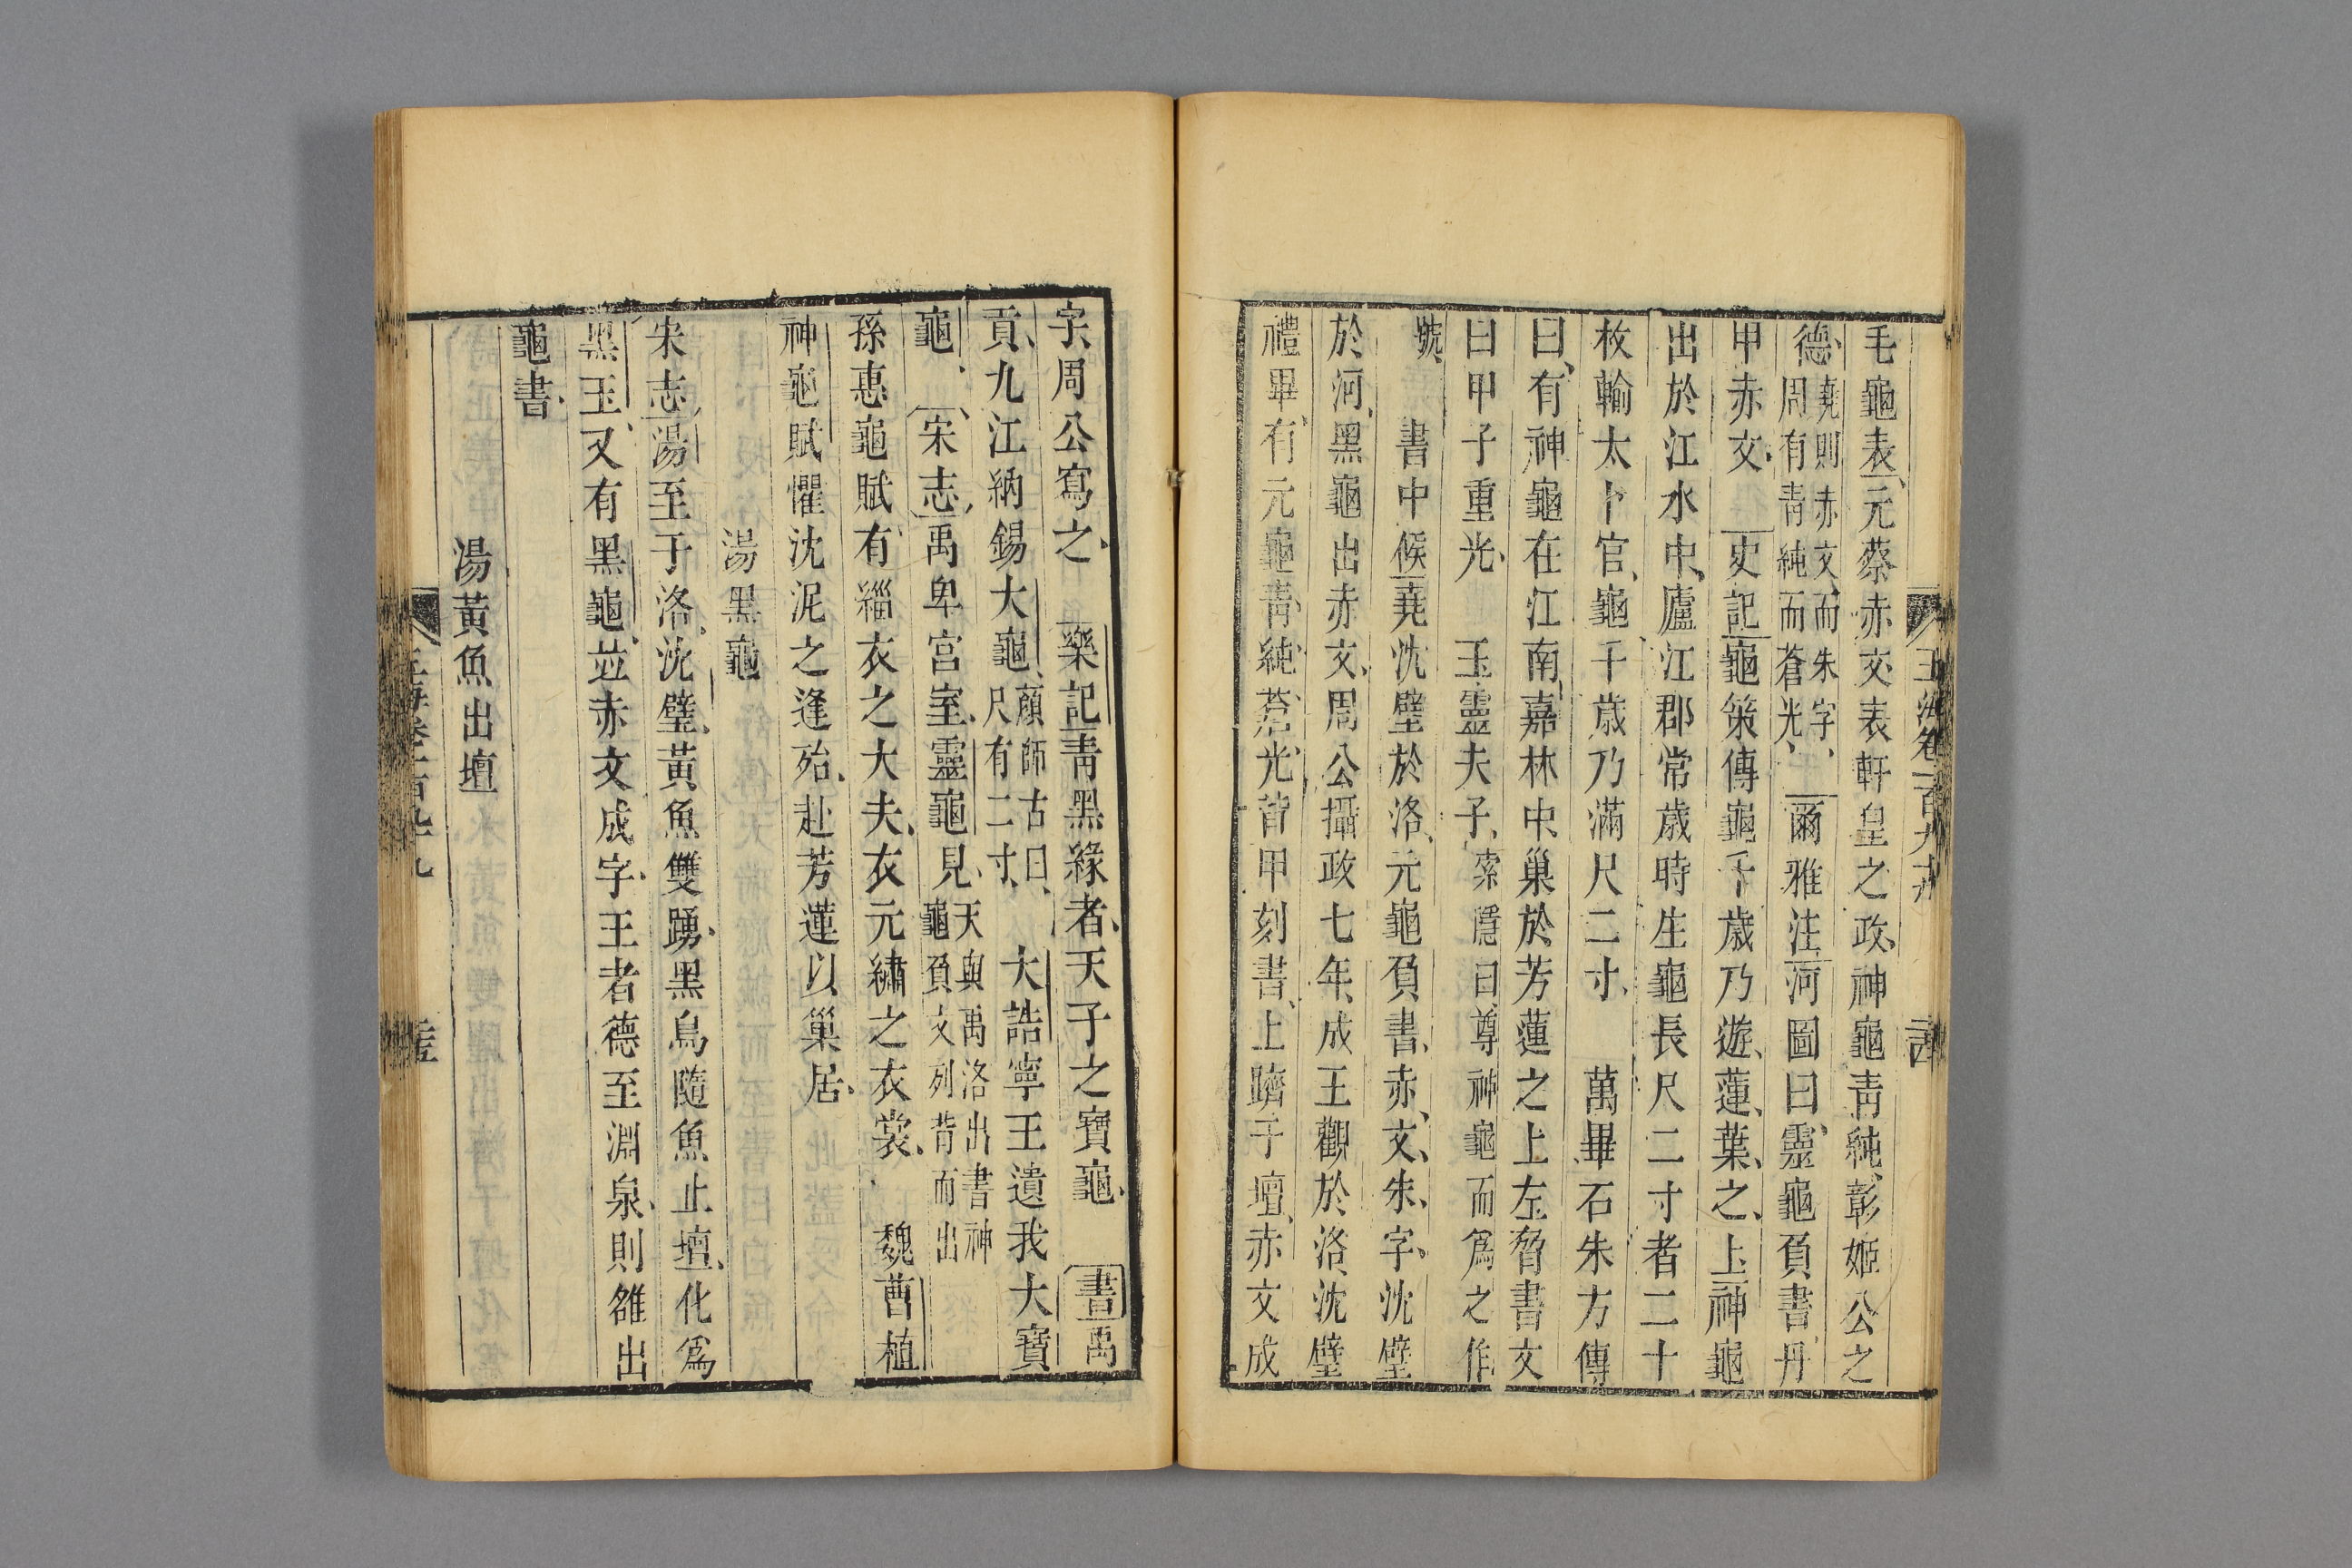 玉海卷一百九十九
毛龜表元蔡赤文表軒皇之政神龜青純彰姬公之
德堯則赤文而朱字
周有青純而蒼光爾雅注河圖曰靈龜負書丹
甲赤文 史記龜策傳龜千歲乃遊蓮葉之上神龜
出於江水中廬江郡常歲時生龜長尺二寸者二十
枚輸太卜官龜千歲乃滿尺二寸 萬畢石朱方傳
曰有神龜在江南嘉林中巢於芳蓮之上左脅書文
曰甲子重光 玉靈夫子索隱曰尊神龜而爲之作
號 書中候堯沈璧於洛元龜負書赤文朱字沈璧
於河黑龜出赤文周公攝政七年成王觀於洛沈璧
禮畢有元龜青純蒼光背甲刻書上躋于壇赤文成
字周公寫之 樂記青黑緣者天子之寶龜 書禹
貢九江納錫大龜顔師古曰
尺有二寸 大誥寧王遺我大寶
龜 宋志禹卑宮室靈龜見天與禹洛出書神
龜負文列背而出
孫惠龜賦有緇衣之大夫衣元繡之衣裳 魏曹植
神龜賦懼沈泥之逢殆赴芳蓮以巢居
湯黑龜
宋志湯至于洛沈璧黃魚雙踴黑鳥隨魚止壇化爲
黑玉又有黑龜並赤文成字王者德至淵泉則雒出
龜書
湯黃魚出壇
玉海卷一百九十九